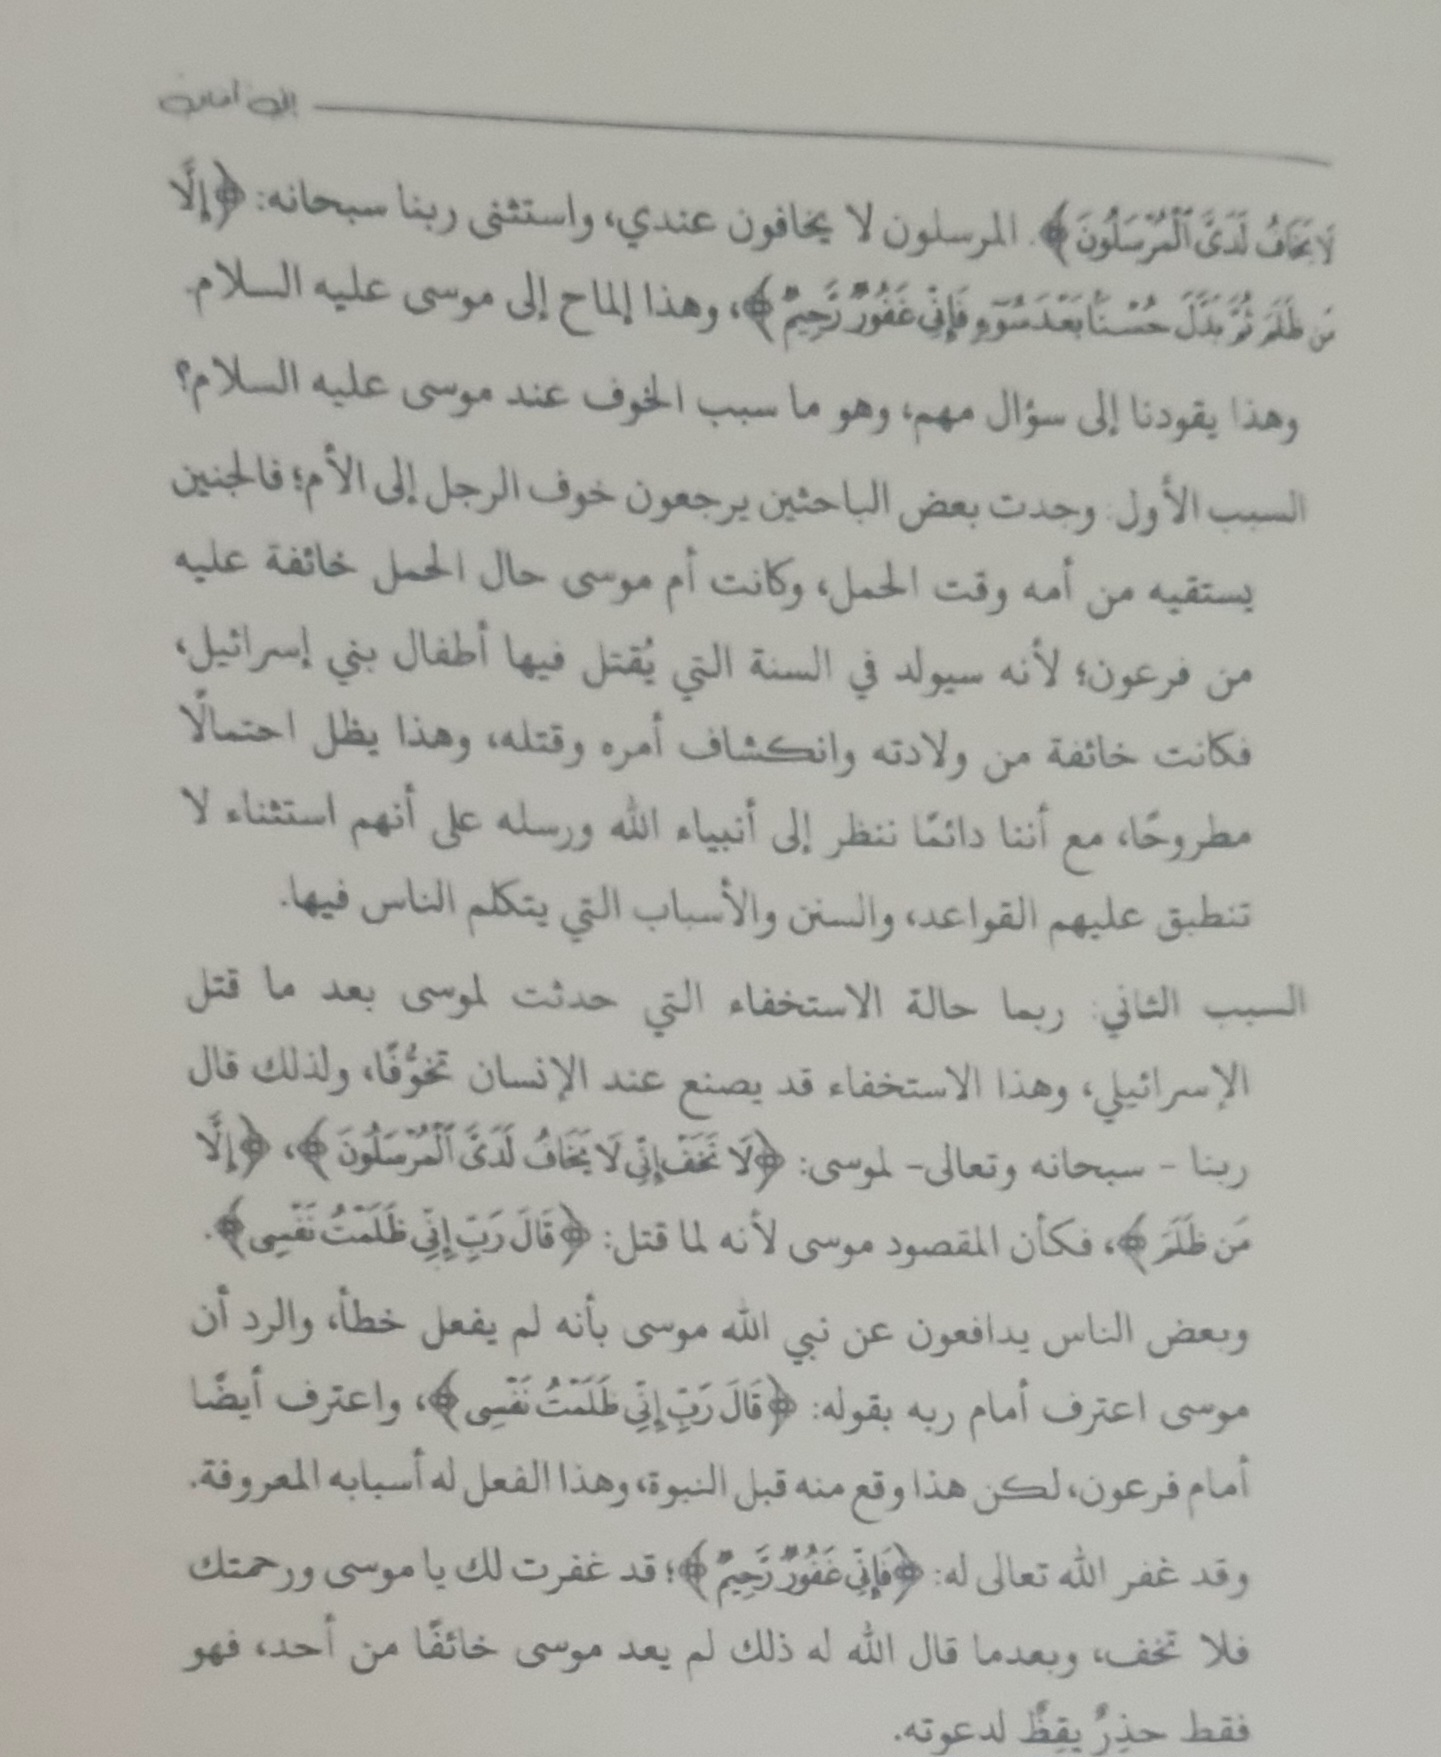 لَا يَخَافُ لَدَيَّ ٱلْمُرْسَلُونَ﴾. المرسلون لا يخافون عندي، واستثنى ربنا سبحانه: ﴿إِلَّا
مَن ظَلَمَ ثُمَّ بَدَّلَ حُسْنًۢا بَعْدَ سُوٓءٍ فَإِنِّي غَفُورٌ رَّحِيمٌ﴾، وهذا إلماح إلى موسى عليه السلام.
وهذا يقودنا إلى سؤال مهم، وهو ما سبب الخوف عند موسى عليه السلام؟
السبب الأول: وجدت بعض الباحثين يرجعون خوف الرجل إلى الأم؛ فالجنين
يستقيه من أمه وقت الحمل، وكانت أم موسى حال الحمل خائفة عليه
من فرعون؛ لأنه سيولد في السنة التي يُقتل فيها أطفال بني إسرائيل،
فكانت خائفة من ولادته وانكشاف أمره وقتله، وهذا يظل احتمالًا
مطروحًا، مع أننا دائمًا ننظر إلى أنبياء الله ورسله على أنهم استثناء لا
تنطبق عليهم القواعد، والسنن والأسباب التي يتكلم الناس فيها.
السبب الثاني: ربما حالة الاستخفاء التي حدثت لموسى بعد ما قتل
الإسرائيلي، وهذا الاستخفاء قد يصنع عند الإنسان تخوُّفًا، ولذلك قال
ربنا - سبحانه وتعالى- لموسى: ﴿لَا تَخَفْ إِنِّي لَا يَخَافُ لَدَيَّ ٱلْمُرْسَلُونَ﴾، ﴿إِلَّا
مَن ظَلَمَ﴾، فكأن المقصود موسى لأنه لما قتل: ﴿قَالَ رَبِّ إِنِّي ظَلَمْتُ نَفْسِي﴾.
وبعض الناس يدافعون عن نبي الله موسى بأنه لم يفعل خطأ، والرد أن
موسى اعترف أمام ربه بقوله: ﴿قَالَ رَبِّ إِنِّي ظَلَمْتُ نَفْسِي﴾، واعترف أيضًا
أمام فرعون، لكن هذا وقع منه قبل النبوة، وهذا الفعل له أسبابه المعروفة.
وقد غفر الله تعالى له: ﴿فَإِنِّي غَفُورٌ رَّحِيمٌ﴾؛ قد غفرت لك يا موسى ورحمتك
فلا تخف، وبعدما قال الله له ذلك لم يعد موسى خائفًا من أحد، فهو
فقط حذِرٌ يقِظٌ لدعوته.